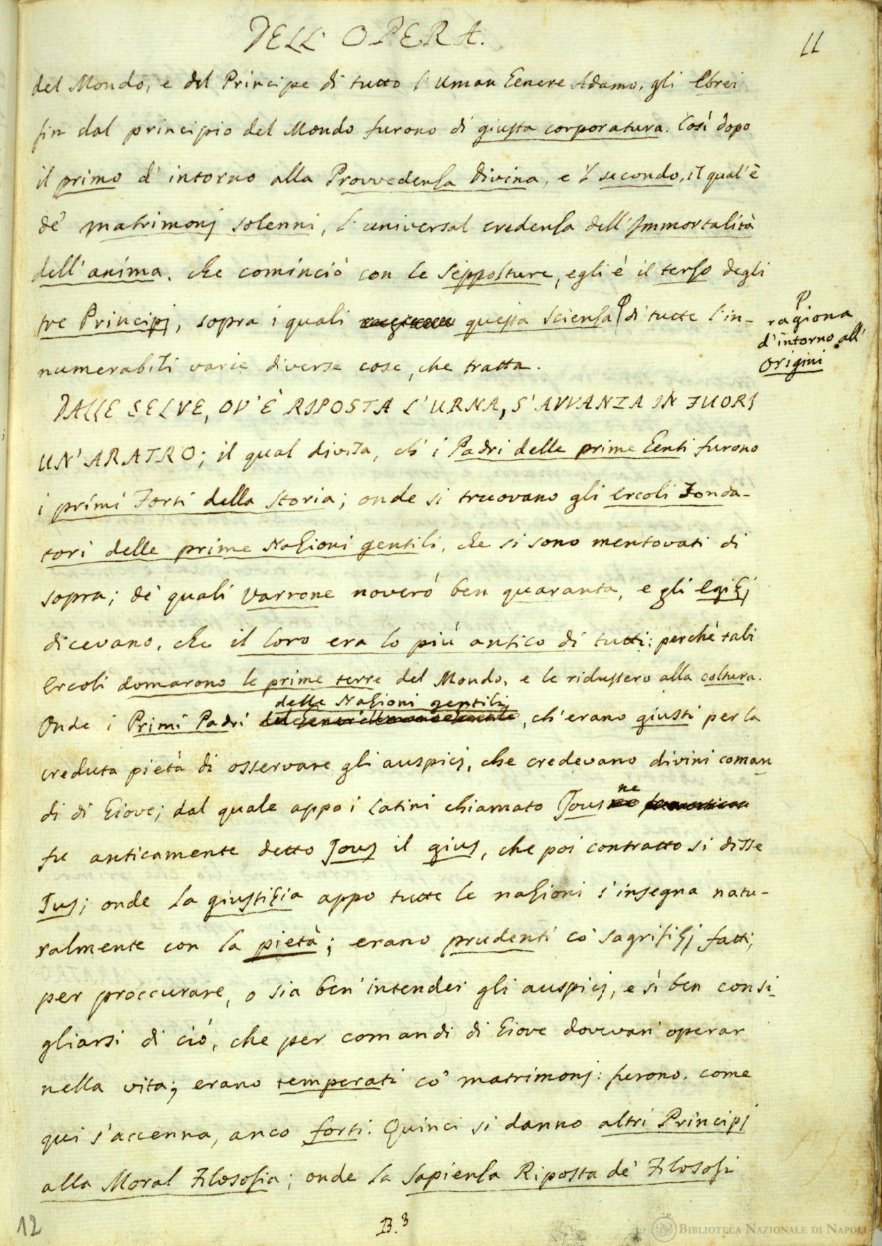 DELL' OPERA.
11
del Mondo, e del Principe di tutto l'Uman Genere Adamo, gli Ebrei
fin dal principio del Mondo furono di giusta corporatura. Così dopo
il primo d'intorno alla Provvedenza Divina, e 'l secondo, il qual'è
de' matrimonj solenni, l'universal credenza dell'Immortalità
dell'anima, che cominciò con le seppolture, egli è il terzo degli
tre Principj, sopra i quali questa Scienza di tutte l'in-
ragiona
d'intorno all'
Origini
numerabili varie diverse cose, che tratta.
DALLE SELVE, OV'È RIPOSTA L'URNA, S'AVVANZA IN FUORI
UN'ARATRO; il qual divisa, ch'i Padri delle prime Genti furono
i primi Forti della Storia; onde si truovano gli Ercoli Fonda-
tori delle prime Nazioni gentili, che si sono mentovati di
sopra; de' quali Varrone noverò ben quaranta, e gli Egizj
dicevano, che il loro era lo più antico di tutti: perchè tali
Ercoli domarono le prime terre del Mondo, e le ridussero alla coltura.
delle Nazioni gentili
Onde i Primi Padri , ch'erano giusti per la
creduta pietà di osservare gli auspicj, che credevano divini coman
di di Giove; dal quale appo i Latini chiamato Jous ne
fu anticamente detto Jous il gius, che poi contratto si disse
Jus; onde la giustizia appo tutte le nazioni s'insegna natu-
ralmente con la pietà; erano prudenti co' sagrifizj fatti,
per proccurare, o sia ben'intender gli auspicj, e sì ben consi-
gliarsi di ciò, che per comandi di Giove dovevan'operar
nella vita; erano temperati co' matrimonj: furono, come
qui s'accenna, anco forti. Quinci si danno altri Principj
alla Moral Filosofia; onde la Sapienza Riposta de' Filosofi
12
B.3
BIBLIOTECA NAZIONALE DI NAPOLI